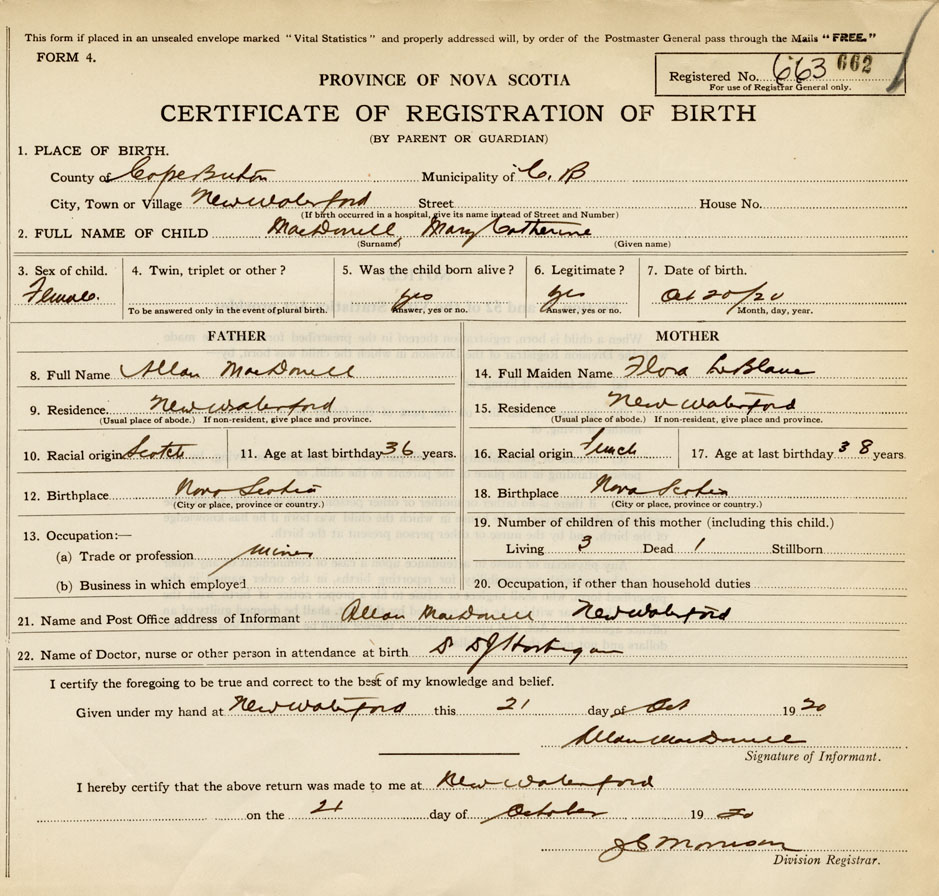 This form if placed in an unsealed envelope marked "Vital Statistics" and properly addressed will, by order of the Postmaster General pass through the Mails "FREE."
FORM 4.
Registered No. 663 662
For use of Registrar General only.
PROVINCE OF NOVA SCOTIA
CERTIFICATE OF REGISTRATION OF BIRTH
(BY PARENT OR GUARDIAN)
1. PLACE OF BIRTH.
County of Cape Breton Municipality of C. B
City, Town or Village New Waterford Street House No.
(If birth occurred in a hospital, give its name instead of Street and Number)
2. FULL NAME OF CHILD MacDonell, Mary Catherine
(Surname) (Given name)
3. Sex of child. 4. Twin, triplet or other? 5. Was the child born alive? 6. Legitimate? 7. Date of birth.
Female. yes yes Oct 20/20
To be answered only in the event of plural birth. Answer, yes or no. Answer, yes or no. Month, day, year.
FATHER MOTHER
8. Full Name Allan MacDonell 14. Full Maiden Name Flora LeBlanc
9. Residence. New Waterford 15. Residence New Waterford
(Usual place of abode.) If non-resident, give place and province. (Usual place of abode.) If non-resident, give place and province.
10. Racial origin Scotch 11. Age at last birthday 36 years. 16. Racial origin French 17. Age at last birthday 38 years
12. Birthplace Nova Scotia 18. Birthplace Nova Scotia
(City or place, province or country.) (City or place, province or country.)
19. Number of children of this mother (including this child.)
13. Occupation:—
(a) Trade or profession miner Living 3 Dead 1 Stillborn
(b) Business in which employed 20. Occupation, if other than household duties
21. Name and Post Office address of Informant Allan MacDonell New Waterford
22. Name of Doctor, nurse or other person in attendance at birth
I certify the foregoing to be true and correct to the best of my knowledge and belief.
Given under my hand at New Waterford this 21 day of Oct 1920
Allan MacDonell
Signature of Informant.
I hereby certify that the above return was made to me at New Waterford
on the 21 day of October 1920
J C Morrison
Division Registrar.